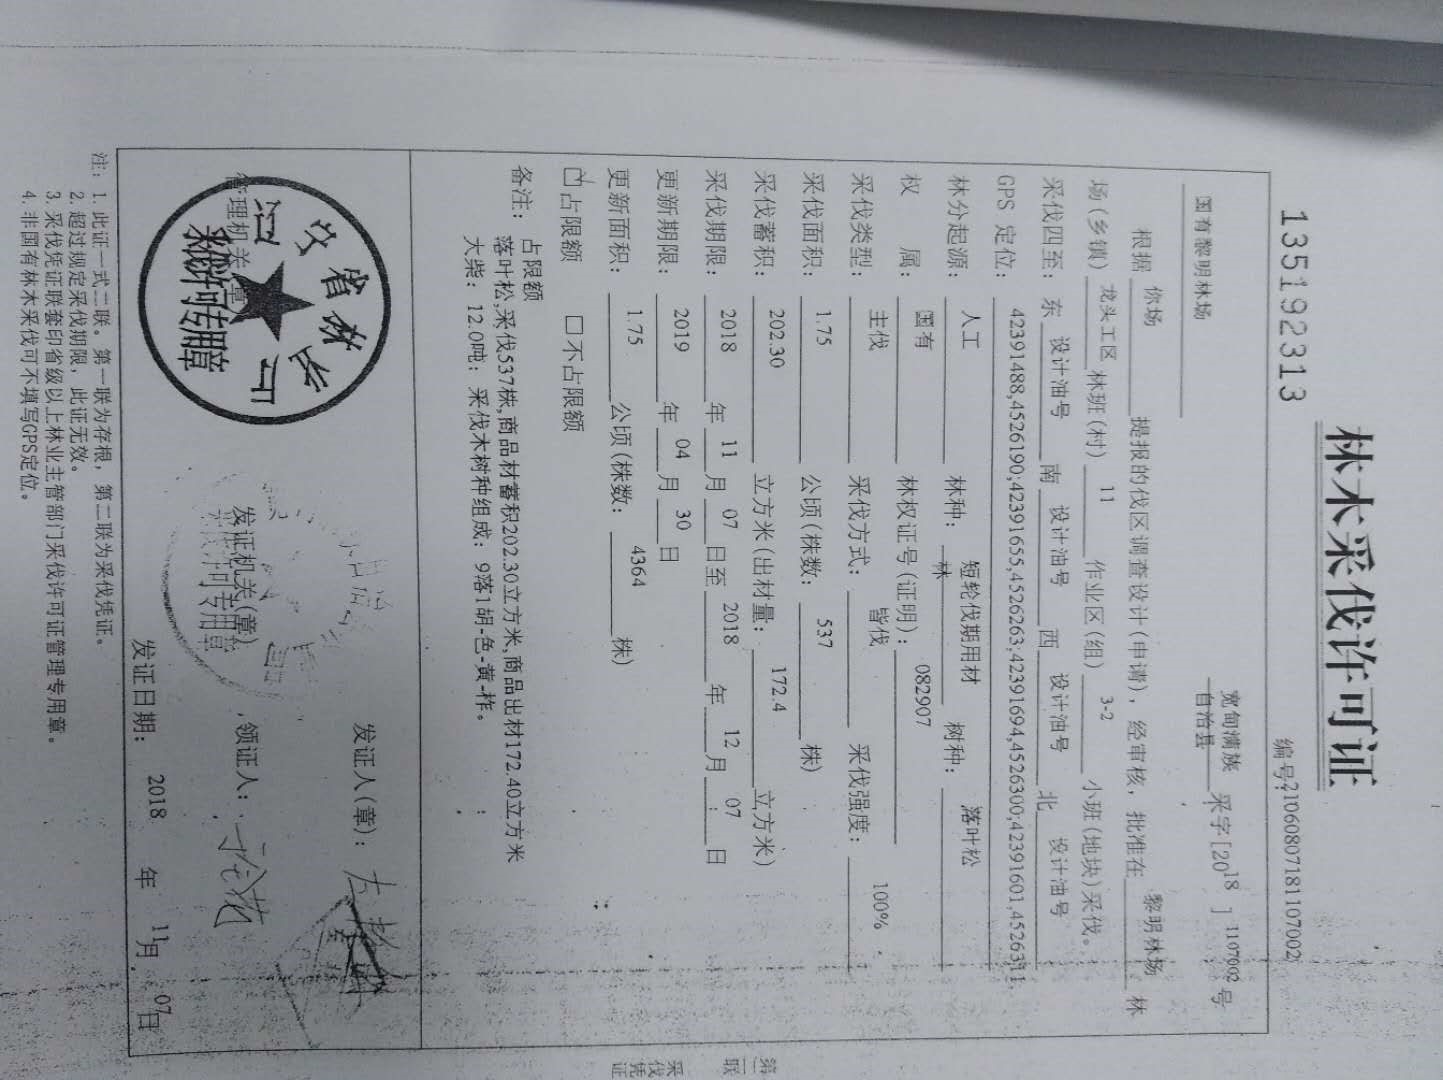 林木采伐许可证
135192313
编号:210608071811070​02
国有黎明林场
宽甸满族自治县 采字[2018] 1107002 号
根据 你场 提报的伐区调查设计(申请),经审核,批准在 黎明林场 林
场(乡镇) 龙头工区 林班(村) 11 作业区(组) 3-2 小班(地块)采伐。
采伐四至: 东 设计油号 南 设计油号 西 设计油号 北 设计油号
GPS 定位: 42391488,4526190;42391655,4526263;42391694,4526300;42391601,4526311
林分起源: 人工 林种: 短轮伐期用材林 树种: 落叶松
权 属: 国有 林权证号(证明): 082907
采伐类型: 主伐 采伐方式: 皆伐 采伐强度: 100%
采伐面积: 1.75 公顷(株数: 537 株)
采伐蓄积: 202.30 立方米(出材量: 172.4 立方米)
采伐期限: 2018 年 11 月 07 日至 2018 年 12 月 07 日
更新期限: 2019 年 04 月 30 日
更新面积: 1.75 公顷(株数: 4364 株)
☑占限额 □不占限额
备注: 占限额
落叶松,采伐537株,商品材蓄积202.30立方米,商品出材172.40立方米
大柴: 12.0吨; 采伐木树种组成: 9落1胡-色-黄-柞。
管理机关(章)
辽宁省林业厅
采伐许可专用章
发证机关(章)
发证人(章):
领证人:
发证日期: 2018 年 11月 07日
注: 1. 此证一式二联。第一联为存根,第二联为采伐凭证。
2. 超过规定采伐期限,此证无效。
3. 采伐凭证联套印省级以上林业主管部门采伐许可证管理专用章。
4. 非国有林木采伐可不填写GPS定位。
第二联 采伐凭证